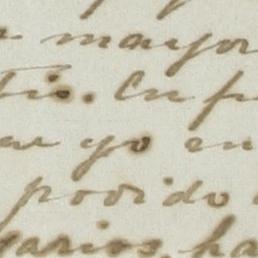 mayor
tio. En
yo en
podido
varios, ha